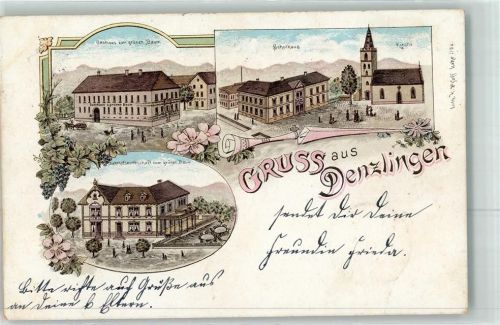 Gasthaus zum grünen Baum
Schulhaus
Kirche
Gartenwirtschaft zum grünen Baum
GRUSS aus
Denzlingen
sendet Dir Deine
Freundin Frieda.
Bitte richte auch Grüße aus
an Deine l. Eltern.